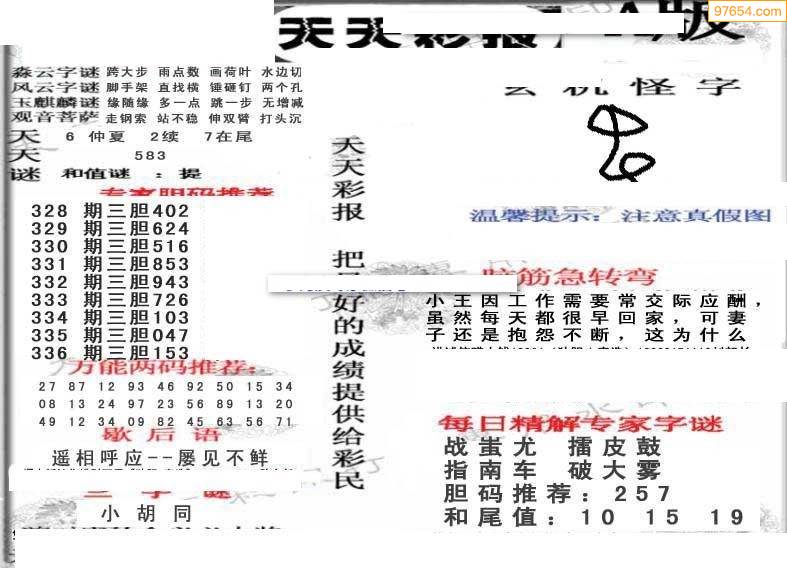 97654.com
天天彩报 A版
森云字谜 跨大步 雨点数 画荷叶 水边切
风云字谜 脚手架 直找横 锤砸钉 两个孔
玉麒麟谜 缘随缘 多一点 跳一步 无增减
观音菩萨 走钢索 站不稳 伸双臂 打头沉
天 6 仲夏 2续 7在尾
天 583
谜 和值谜 :提
专家胆码推荐
328 期三胆402
329 期三胆624
330 期三胆516
331 期三胆853
332 期三胆943
333 期三胆726
334 期三胆103
335 期三胆047
336 期三胆153
万能两码推荐:
27 87 12 93 46 92 50 15 34
08 13 24 97 23 56 89 13 20
49 12 34 09 82 45 63 56 71
歇后语
遥相呼应--屡见不鲜
三字谜
小胡同
天天彩报 把最好的成绩提供给彩民
玄机怪字
温馨提示: 注意真假图
脑筋急转弯
小王因工作需要常交际应酬,
虽然每天都很早回家,可妻
子还是抱怨不断,这为什么
每日精解专家字谜
战蚩尤 擂皮鼓
指南车 破大雾
胆码推荐:257
和尾值:10 15 19